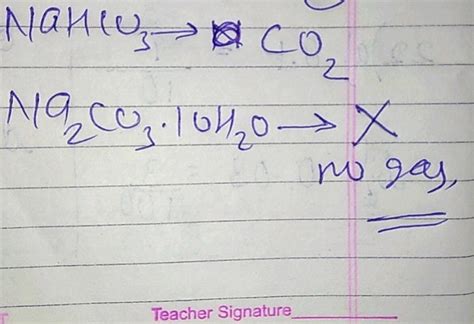 NaHCO₃ → CO₂
Na₂CO₃·10H₂O → X
no gas,
Teacher Signature